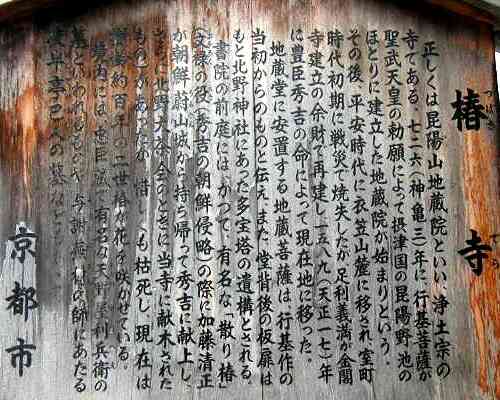 椿寺
つばき
でら
正しくは昆陽山地蔵院といい、浄土宗の
寺である。七二六(神亀三)年に行基菩薩が
聖武天皇の勅願によって摂津国の昆陽野池の
ほとりに建立した地蔵院が始まりという。
その後、平安時代に衣笠山麓に移され、室町
時代初期に戦災で焼失したが足利義満が金閣
寺建立の余財で再建し一五八九(天正一七)年
に豊臣秀吉の命によって現在地に移った。
地蔵堂に安置する地蔵菩薩は、行基作の
当初からのものと伝え、また、堂背後の板扉は
もと北野神社にあった多宝塔の遺構とされる。
書院の前庭には、かつて、有名な「散り椿」
(文禄の役、秀吉の朝鮮侵略)の際に加藤清正
が朝鮮、蔚山城から持ち帰って秀吉に献上し、
さらに北野大茶会のときに当寺に献木された
ものとがあったが惜しくも枯死し、現在は
樹齢約百年の二世椿が花を咲かせている。
境内には、忠臣蔵で有名な天野屋利兵衛の
墓といわれるものや、与謝蕪村の師にあたる
夜半亭巴人の墓などがある
京都市